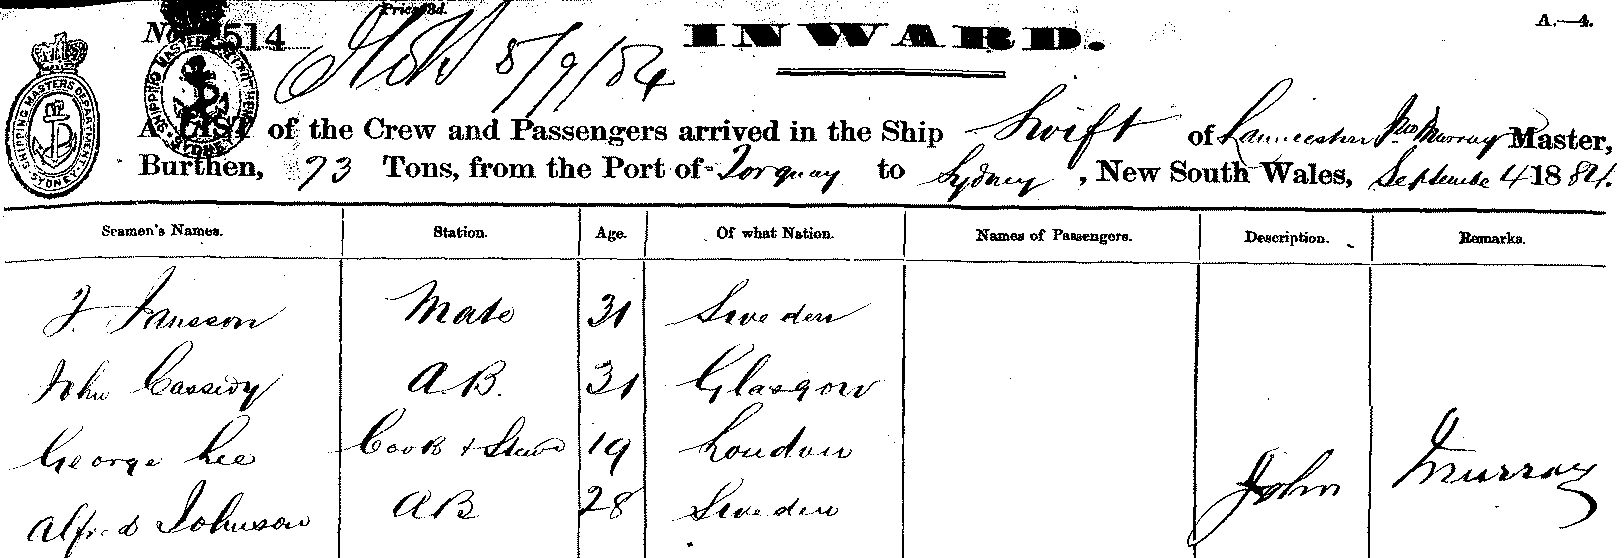 Price 3d.
No. 514
INWARD.
A.—4.
8/9/84
SHIPPING MASTERS DEPARTMENT SYDNEY
A LIST of the Crew and Passengers arrived in the Ship Swift of Launceston Jno Murray Master,
Burthen, 73 Tons, from the Port of Torquay to Sydney, New South Wales, September 4 1884.
Seamen's Names. Station. Age. Of what Nation. Names of Passengers. Description. Remarks.
J. Jansson Mate 31 Sweden
John Cassidy A.B. 31 Glasgow
George Lee Cook & Stewd 19 London
Alfred Johnson AB 28 Sweden
John Murray